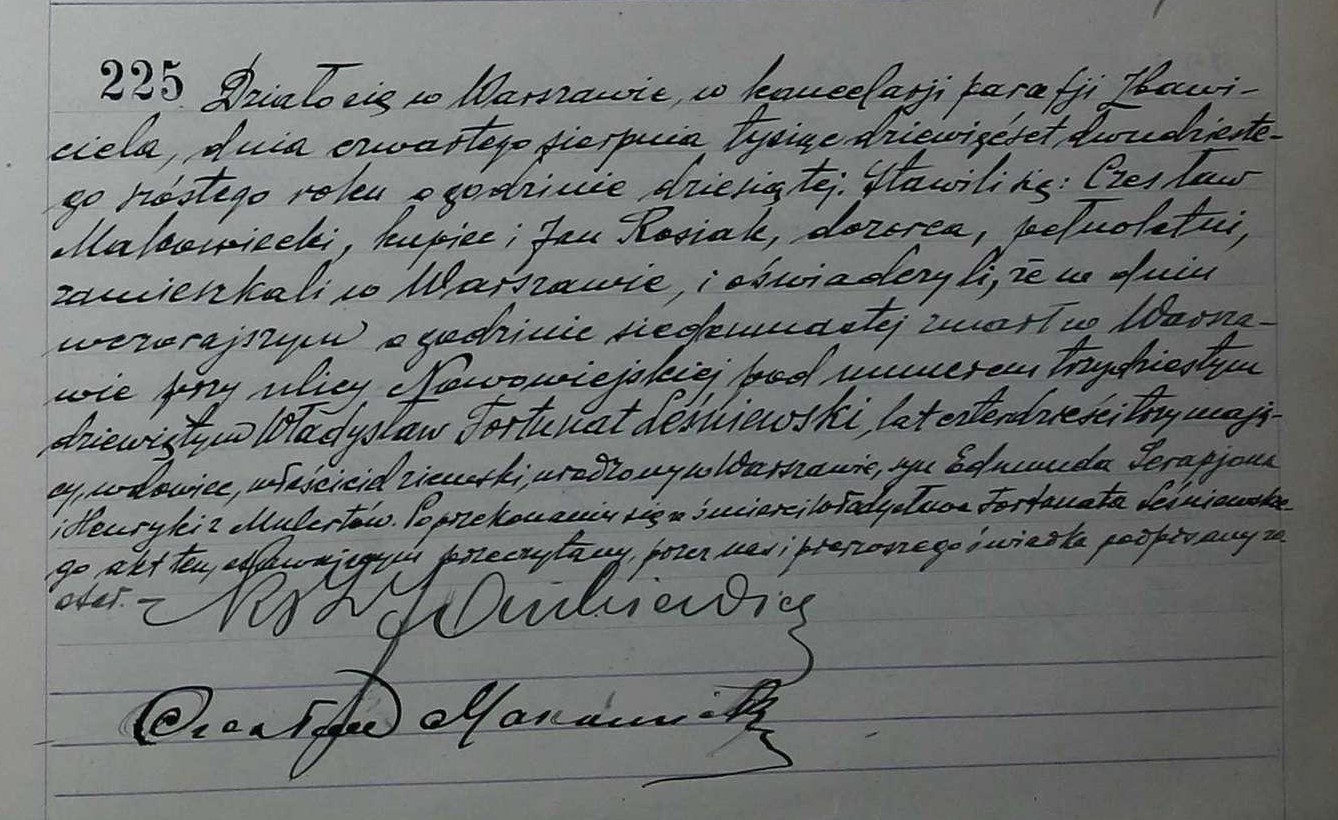 225 Działo się w Warszawie, w kancelarji parafji Zbawi-
ciela, dnia czwartego sierpnia tysiąc dziewięćset dwudzieste-
go szóstego roku o godzinie dziesiątej. Stawili się: Czesław
Makowiecki, kupiec i Jan Rosiak, dozorca, pełnoletni,
zamieszkali w Warszawie, i oświadczyli, że w dniu
wczorajszym o godzinie siedemnastej zmarł w Warsza-
wie przy ulicy Nowowiejskiej pod numerem trzydziestym
dziewiątym Władysław Fortunat Leśniewski, lat czterdzieści trzy mają-
cy, wdowiec, właściciel ziemski, urodzony w Warszawie, syn Edmunda Serapjona
i Henryki z Mulertów. Po przekonaniu się o śmierci Władysława Fortunata Leśniewskie-
go akt ten, stawającym przeczytany, przez nas i pierwszego świadka podpisany zo
stał. —
Czesław Makowiecki